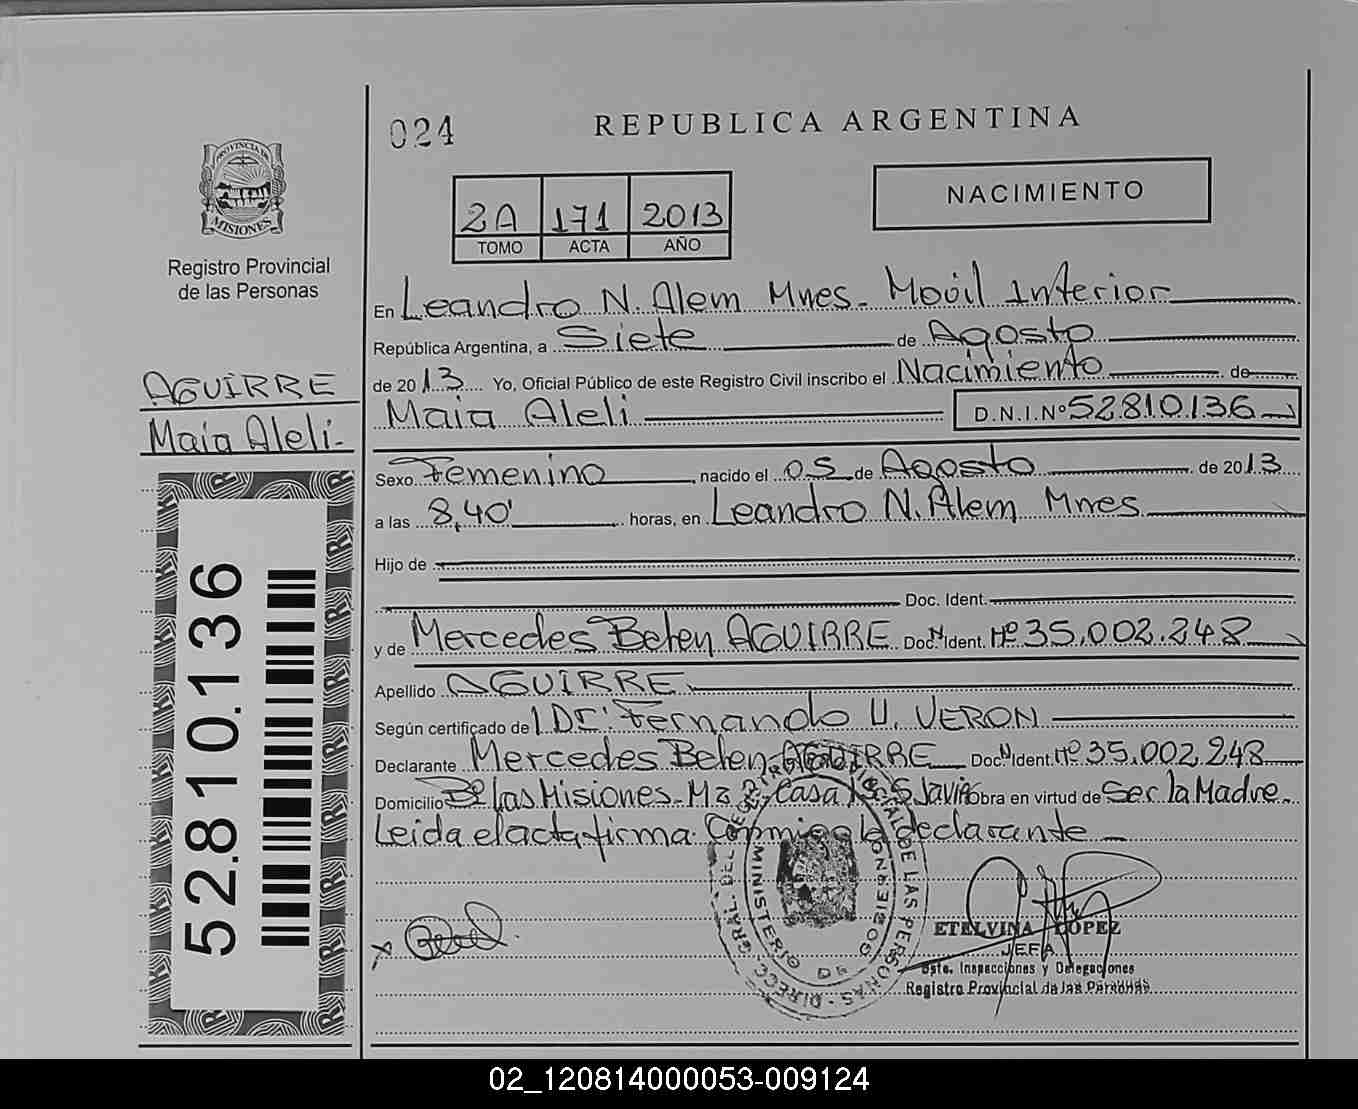 024
REPUBLICA ARGENTINA
PROVINCIA DE MISIONES
Registro Provincial
de las Personas
2A 171 2013
TOMO ACTA AÑO
NACIMIENTO
En Leandro N. Alem Mnes. Movil Interior
República Argentina, a Siete de Agosto
de 2013 Yo, Oficial Público de este Registro Civil inscribo el Nacimiento de
Maia Aleli D.N.I.Nº 52810.136
AGUIRRE
Maia Aleli-
52.810.136
Sexo Femenino, nacido el 05 de Agosto de 2013
a las 8,40' horas, en Leandro N. Alem Mnes
Hijo de
Doc. Ident.
y de Mercedes Belen AGUIRRE Doc. N. Ident. Nº 35.002.248
Apellido AGUIRRE
Según certificado de Dr. Fernando U. VERON
Declarante Mercedes Belen AGUIRRE Doc. N. Ident. Nº 35.002.248
Domicilio Bº las Misiones - Mz Casa S. Javier obra en virtud de Ser la Madre
Leida el acta firma conmigo la declarante
DIRECC. GRAL. DEL REGISTRO PROVINCIAL DE LAS PERSONAS
MINISTERIO DE GOBIERNO
ETELVINA LOPEZ
JEFA
Dpto. Inspecciones y Delegaciones
Registro Provincial de las Personas
02_120814000053-009124